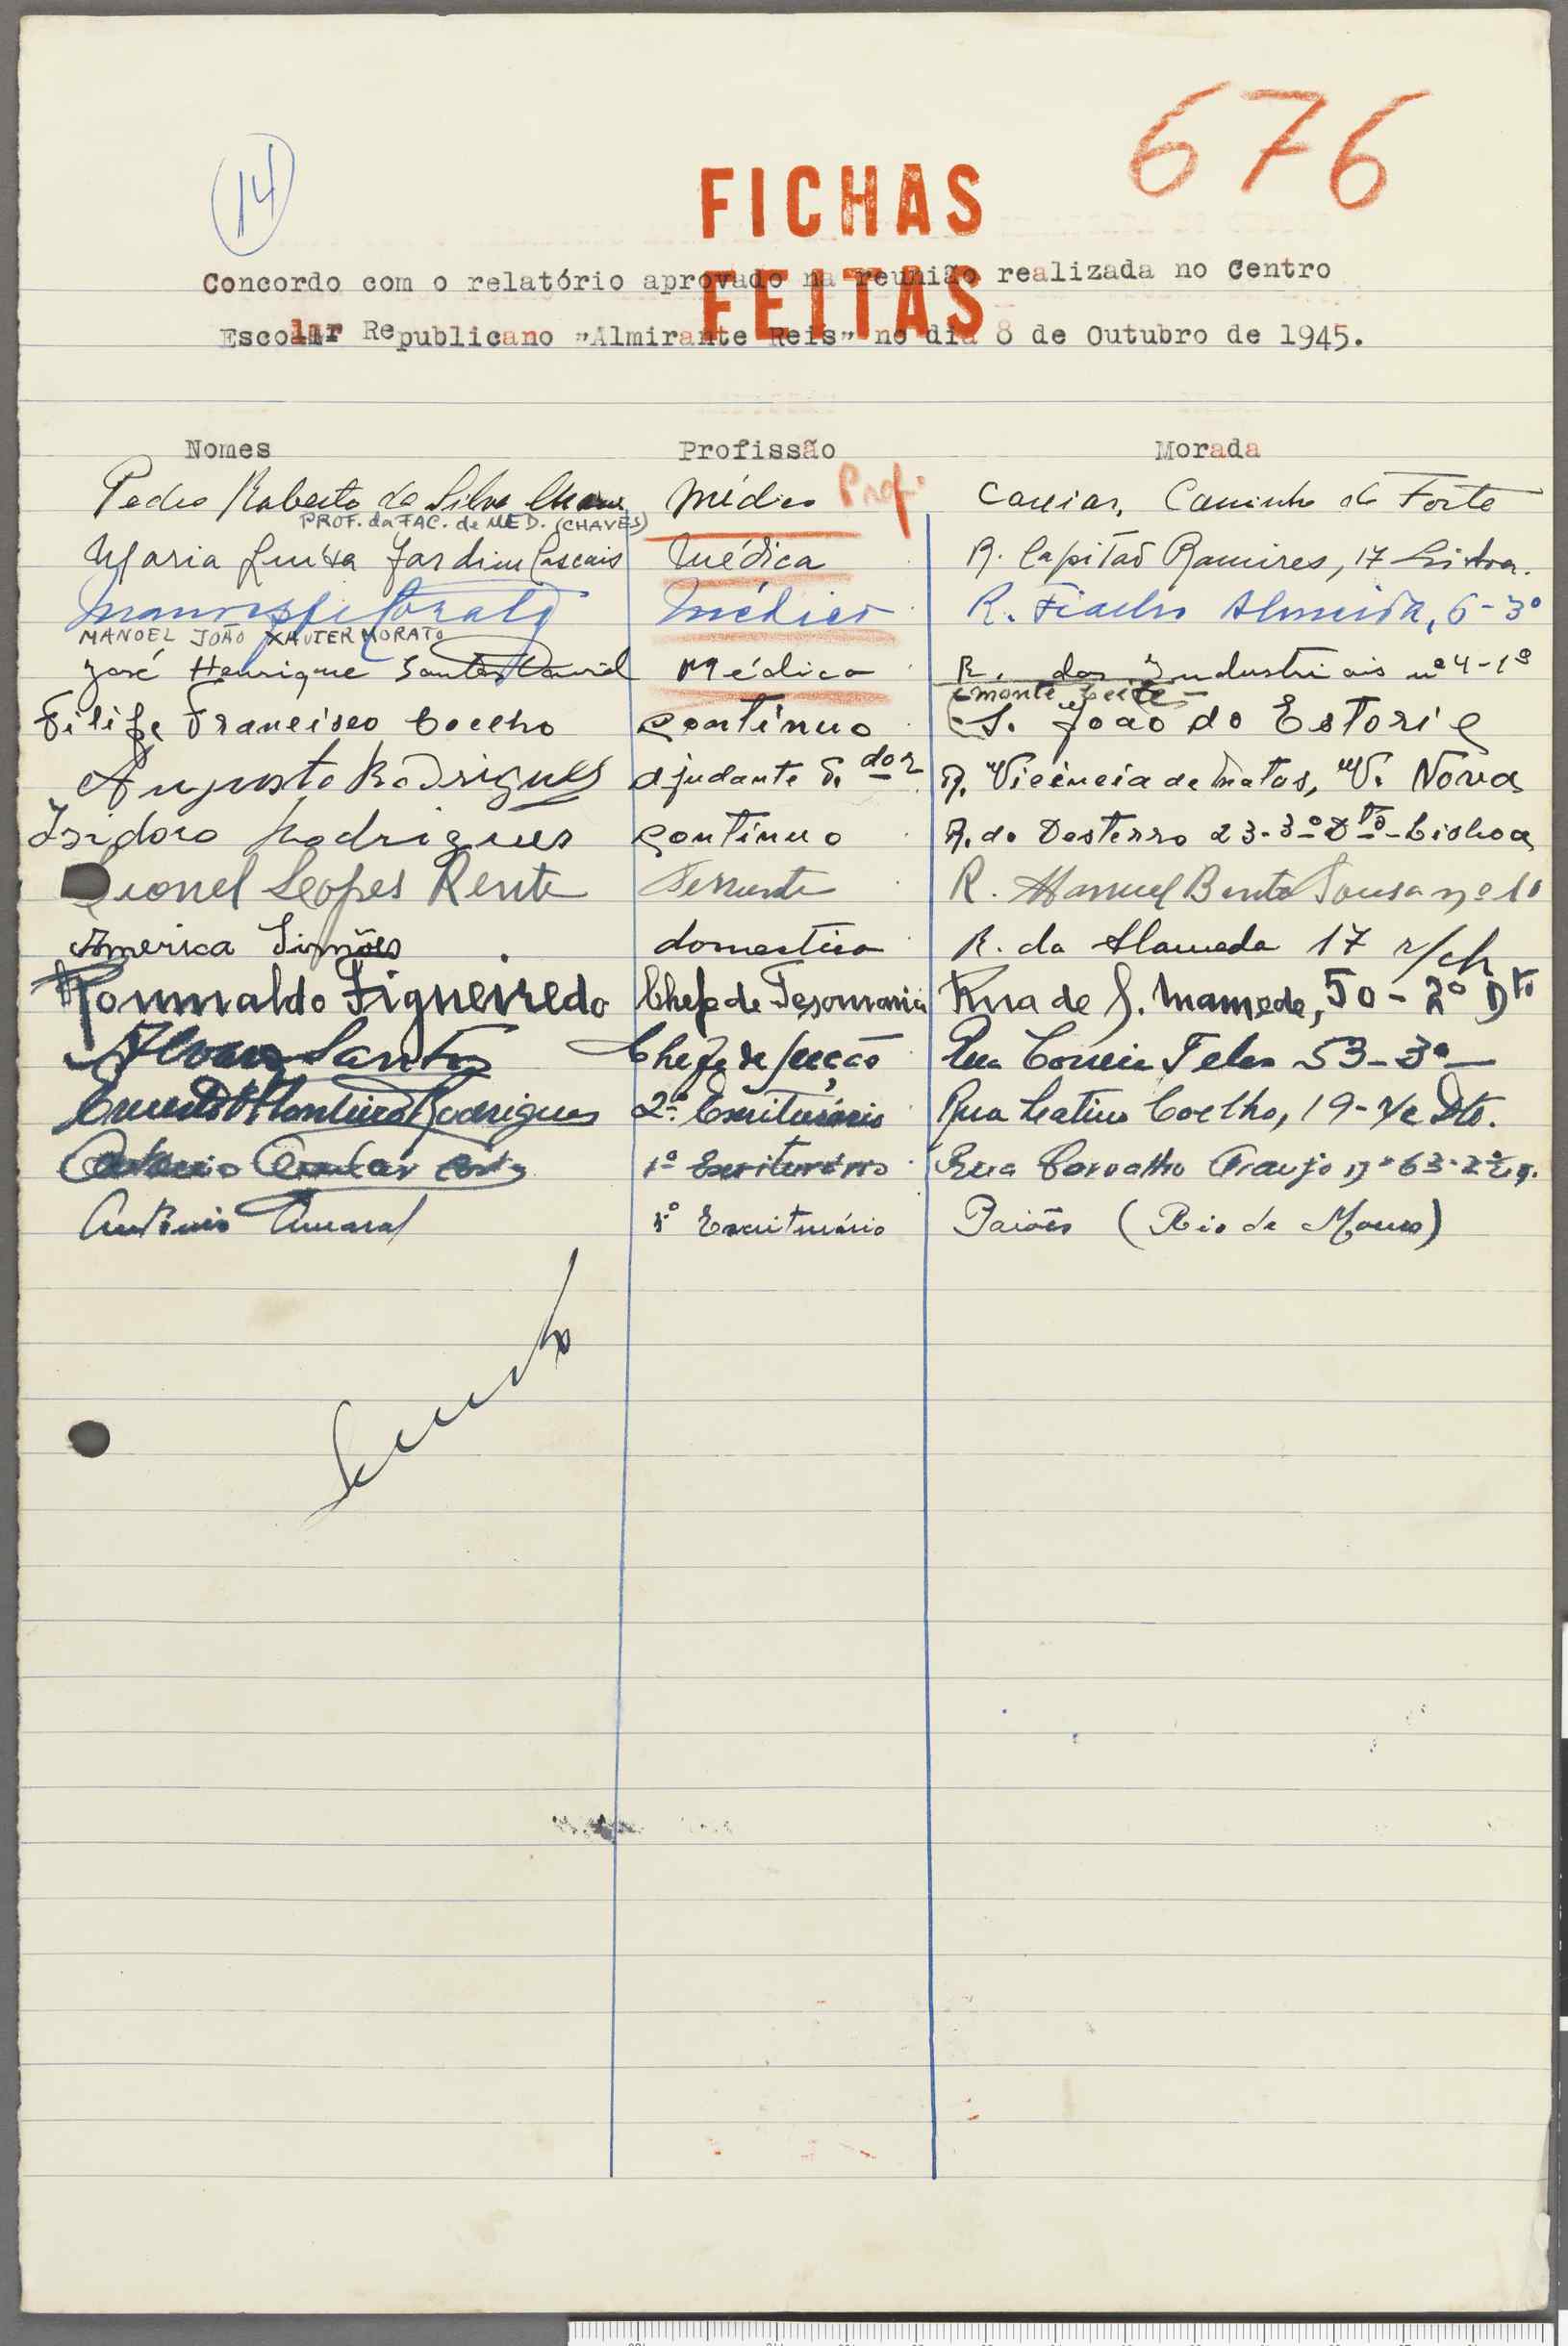 676
14
FICHAS
FEITAS
Concordo com o relatório aprovado na reunião realizada no Centro
Escolar Republicano "Almirante Reis" no dia 8 de Outubro de 1945.
Nomes Profissão Morada
Pedro Roberto da Silva Chaves Médico Prof. Caxias, Caminho do Forte
PROF. da FAC. de MED. (CHAVES)
Maria Luísa Jardim Cascais Médica R. Capitão Ramires, 17 Lisboa.
Médico R. Fialho Almeida, 6-3º
MANOEL JOÃO XAVIER MORATO
José Henrique Santos David Médico R. das Industriais nº 4-1º
Filipe Francisco Coelho Contínuo S. João do Estoril
Augusto Rodrigues Ajudante R. Vicência de Matos, V. Nova
Isidoro Rodrigues Contínuo R. do Desterro 23-3º Dto - Lisboa
Lionel Lopes Rente Servente R. Manuel Bento Sousa nº 10
America Simões domestica R. da Alameda 17 r/ch
Romualdo Figueiredo Chefe de Tesouraria Rua de S. Mamede, 50-2º Dto
Alvaro Santos Chefe de secção Rua Correia Teles 53-3º
Ernesto Monteiro Rodrigues 2º Escriturário Rua Latino Coelho, 19-r/c Dto.
1º Escriturário Rua Carvalho Araujo nº 63-2º Esq.
António Amaral 1º Escriturário Paiões (Rio de Mouro)